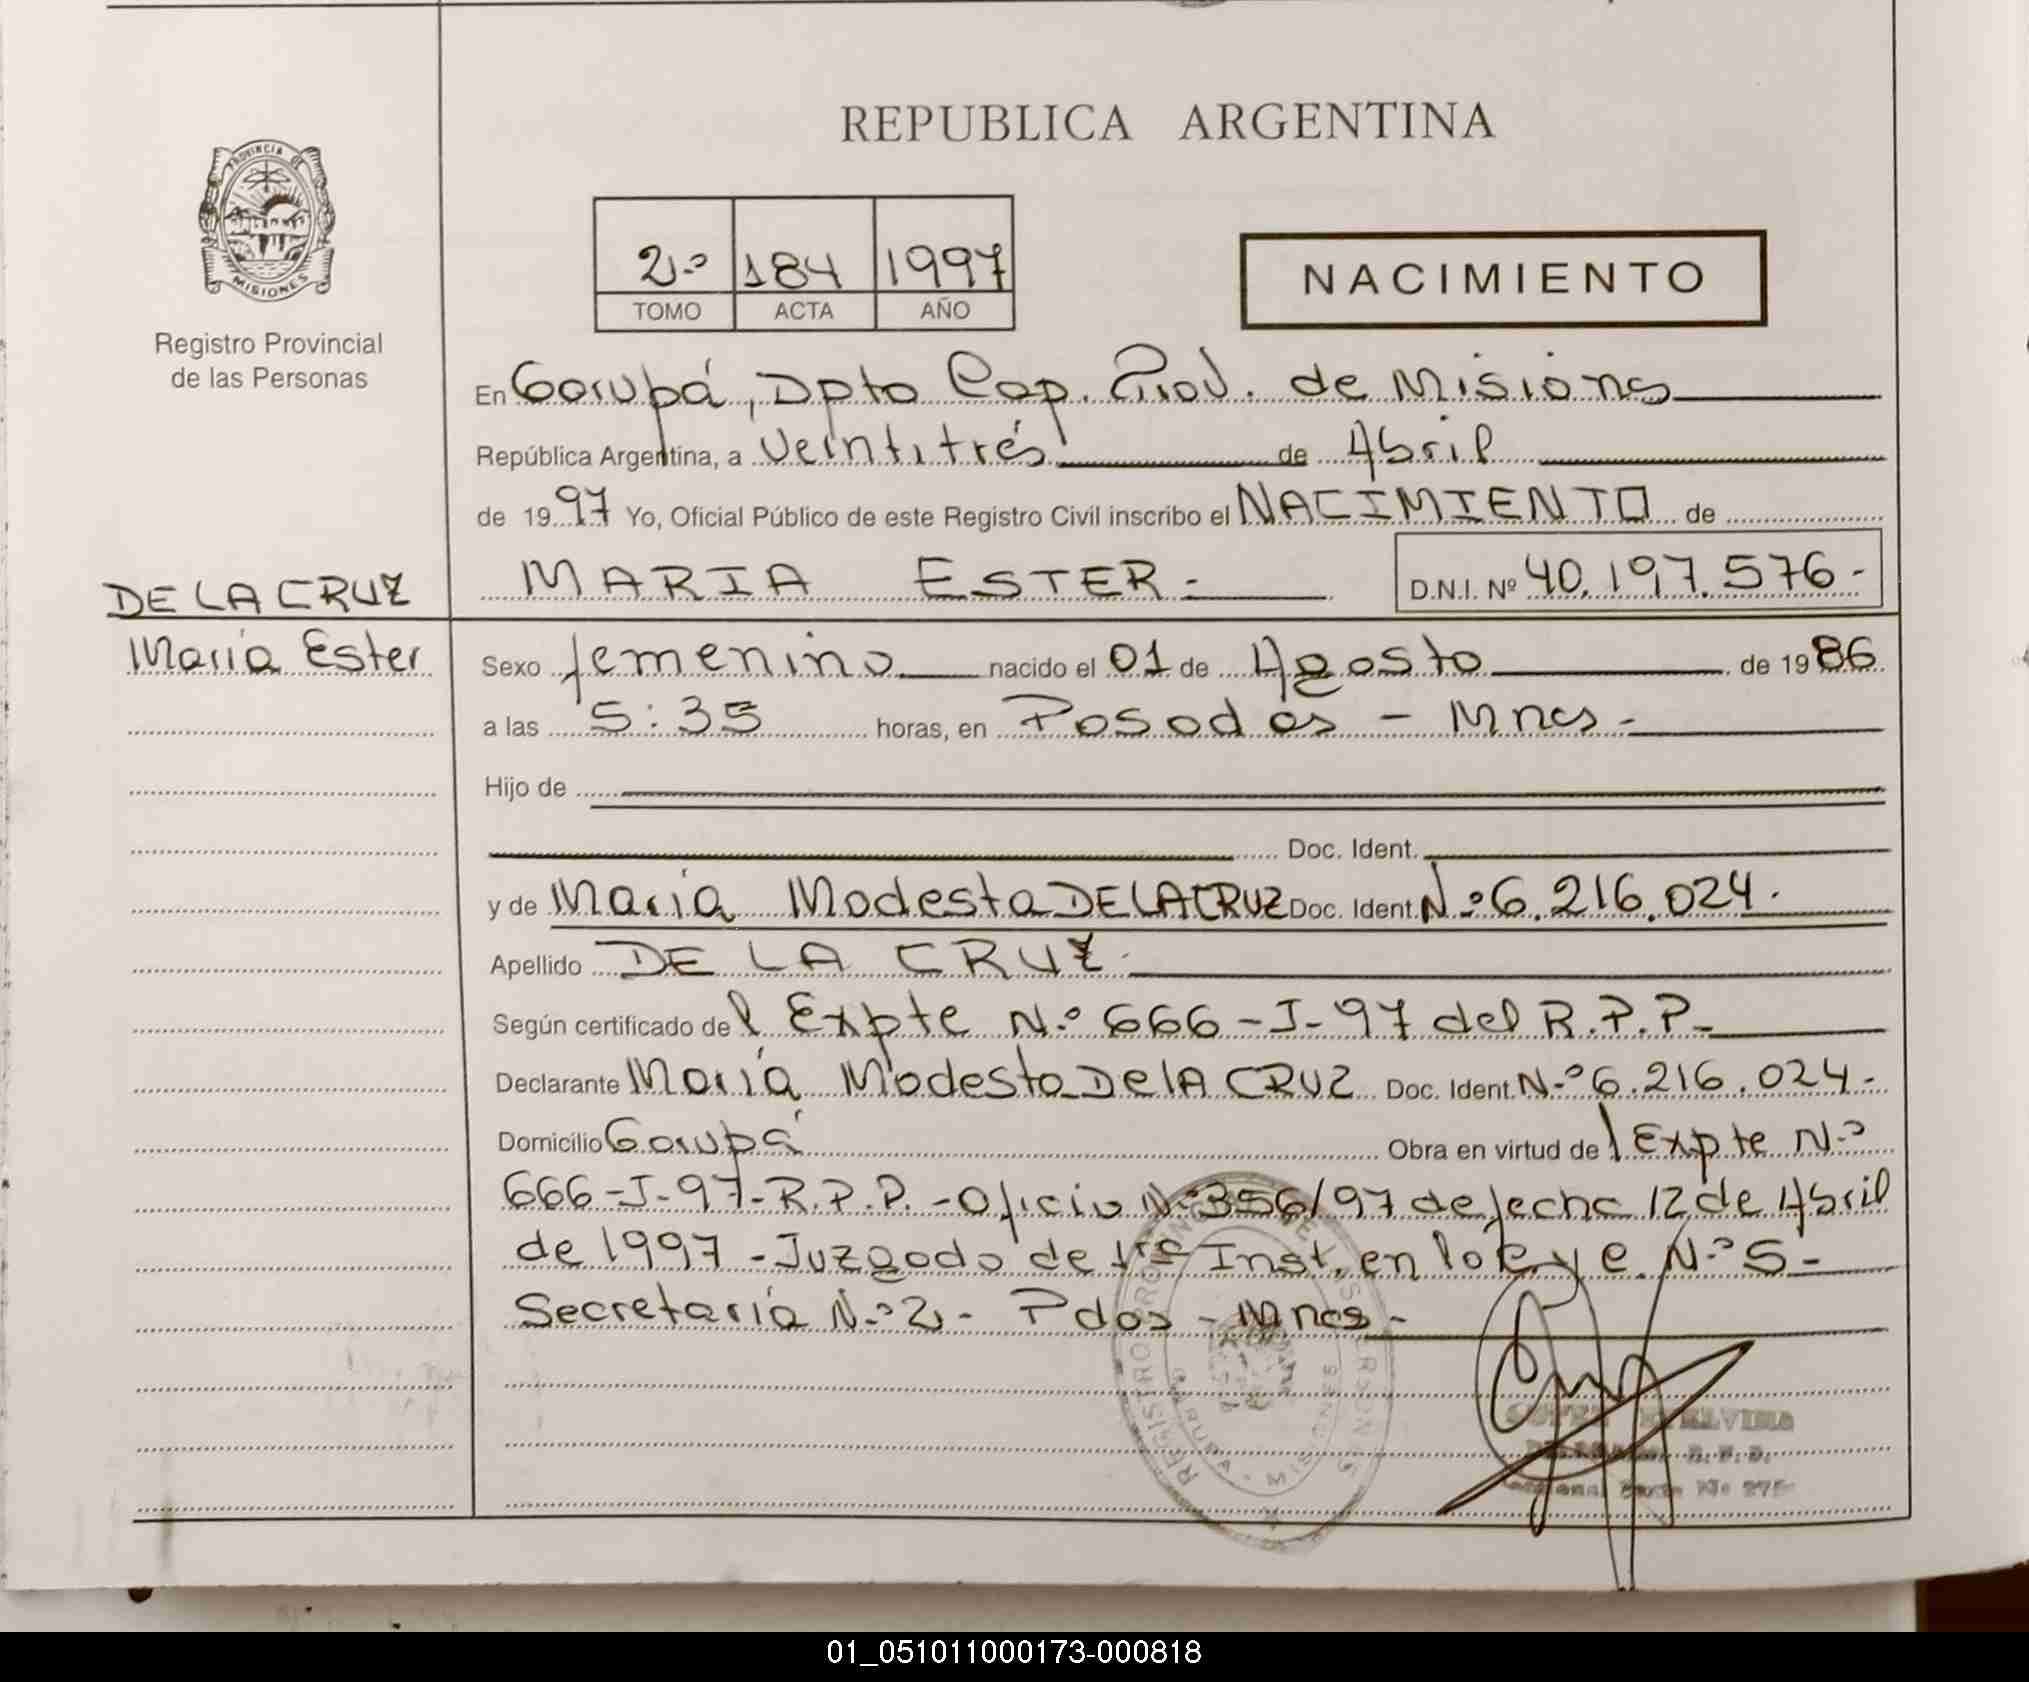 REPUBLICA ARGENTINA
PROVINCIA DE
MISIONES
Registro Provincial
de las Personas
2.º 184 1997
TOMO ACTA AÑO
NACIMIENTO
En Garupá, Dpto Cap. Prov. de Misiones
República Argentina, a veintitrés de Abril
de 1997 Yo, Oficial Público de este Registro Civil inscribo el NACIMIENTO de
MARIA ESTER.- D.N.I. Nº 40.197.576-
DE LA CRUZ
María Ester
Sexo femenino nacido el 01 de Agosto de 1986
a las 5:35 horas, en Posadas - Mnes.-
Hijo de
Doc. Ident.
y de María Modesta DE LA CRUZ Doc. Ident. N.º 6.216.024.
Apellido DE LA CRUZ.
Según certificado del Expte N.º 666-J-97 del R.P.P.-
Declarante María Modesta De lA CRUZ Doc. Ident. N.º 6.216.024-
Domicilio Garupá Obra en virtud del Expte N.º
666-J-97-R.P.P.-Oficio N.º 356/97 de fecha 12 de Abril
de 1997 - Juzgado de 1ra Inst. en lo C. y C. N.º 5-
Secretaría N.º 2- Pdas - Mnes-
REGISTRO PROVINCIAL DE LAS PERSONAS
GARUPA - MISIONES
01_051011000173-000818